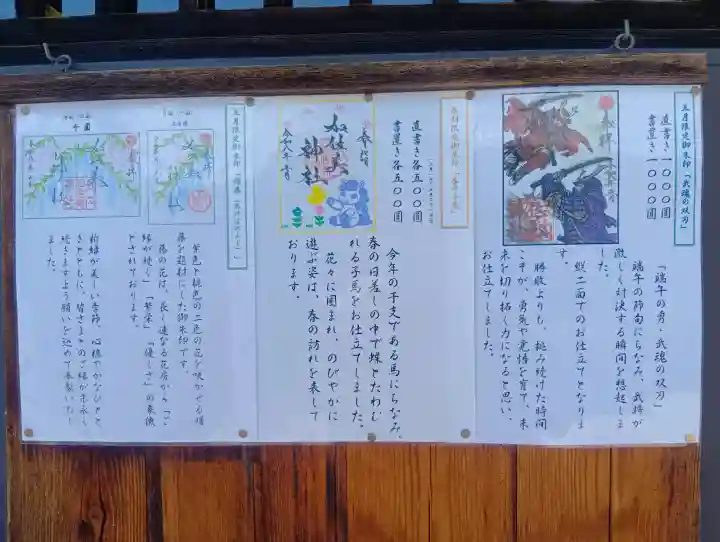 五月限定御朱印「武魂の双刃」
直書き 一〇〇〇圓
書置き 一〇〇〇圓
「端午の勇・武魂の双刃」
端午の節句にちなみ、武将が
激しく対決する瞬間を想起しま
した。
縦二面でのお仕立てとなりま
す。
勝敗よりも、挑み続けた時間
こそが、勇気や覚悟を育て、未
来を切り拓く力になると思い、
お仕立てしました。
直書き各五〇〇圓
書置き各五〇〇圓
奉拝
加佐美
神社
令和八年
今年の干支である馬にちなみ、
春の日差しの中で蝶とたわむ
れる子馬をお仕立てしました。
花々に囲まれ、のびやかに
遊ぶ姿は、春の訪れを表して
おります。
紫色と桃色の二色の花を咲かせる様
藤を題材にした御朱印です。
藤の花は、長く連なる花房から「ご
縁が続く」「繁栄」「優しさ」の象徴
とされております。
新緑が美しい季節、心穏やかなひとと
きとともに、皆さまとのご縁が末永く
続きますよう願いを込めて奉製いたし
ました。